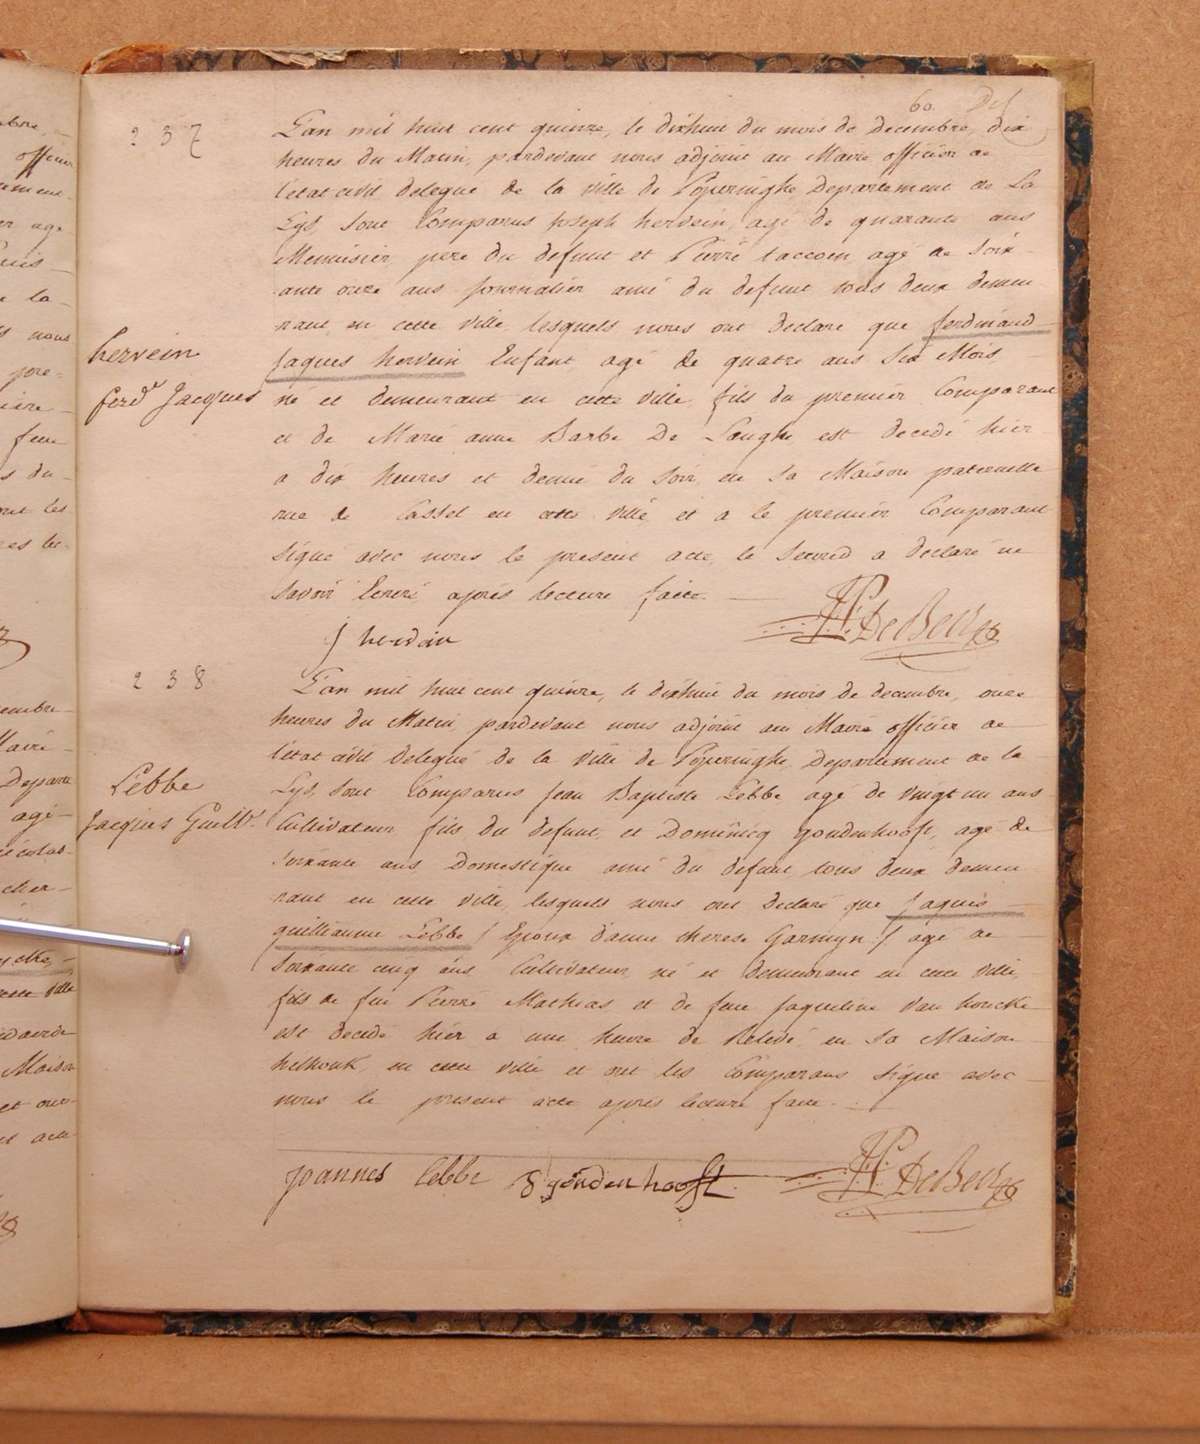 60.
237
L'an mil huit cent quinze, le dixhuit du mois de decembre, dix
heures du Matin, pardevant nous adjoint au Maire officier de
l'état civil delegué de la ville de Poperinghe Departement de La
Lys, sont Comparus Joseph hervein, agé de quarante ans
Menuisier pere du defunt et Pierre taccoen agé de Soix-
-ante onze ans Journalier ami du defunt tous deux demeu
rant en cette ville, lesquels nous ont declaré que ferdinand
Jaques hervein Enfant agé de quatre ans six Mois
né et demeurant en cette ville, fils du premier Comparant
et de Marie anne Barbe De Langhe est decedé hier
a dix heures et demie du soir, en sa Maison paternelle
rue de Cassel en cette ville et a le premier Comparant
signé avec nous le present acte, le second a declaré ne
savoir Ecrire après lecture faite.
hervein
ferd. Jacques
J hervein
DeBeir
238
L'an mil huit cent quinze, le dixhuit du mois de decembre, onze
heures du Matin, pardevant nous adjoint au Maire officier de
l'état civil delegué de la ville de Poperinghe, Departement de la
Lys, sont Comparus Jean Baptiste Lebbe agé de vingt un ans
Cultivateur, fils du defunt, et Dominicq gondenhooft, agé de
soixante ans Domestique ami du defunt, tous deux demeu
rant en cette ville, lesquels nous ont declaré que Jaques
guilliaume Lebbe / Epoux d'anne therese Garmyn / agé de
soixante cinq ans Cultivateur, né et demeurant en cette ville,
fils de feu Pierre Mathias et de feue Jaqueline Van houcke
est decedé hier a une heure de Relevé, en sa Maison
helhouk, en cette ville et ont les Comparans signé avec
nous le present acte après lecture faite.
Lebbe
Jacques Guill.
joannes lebbe
gondenhooft
DeBeir